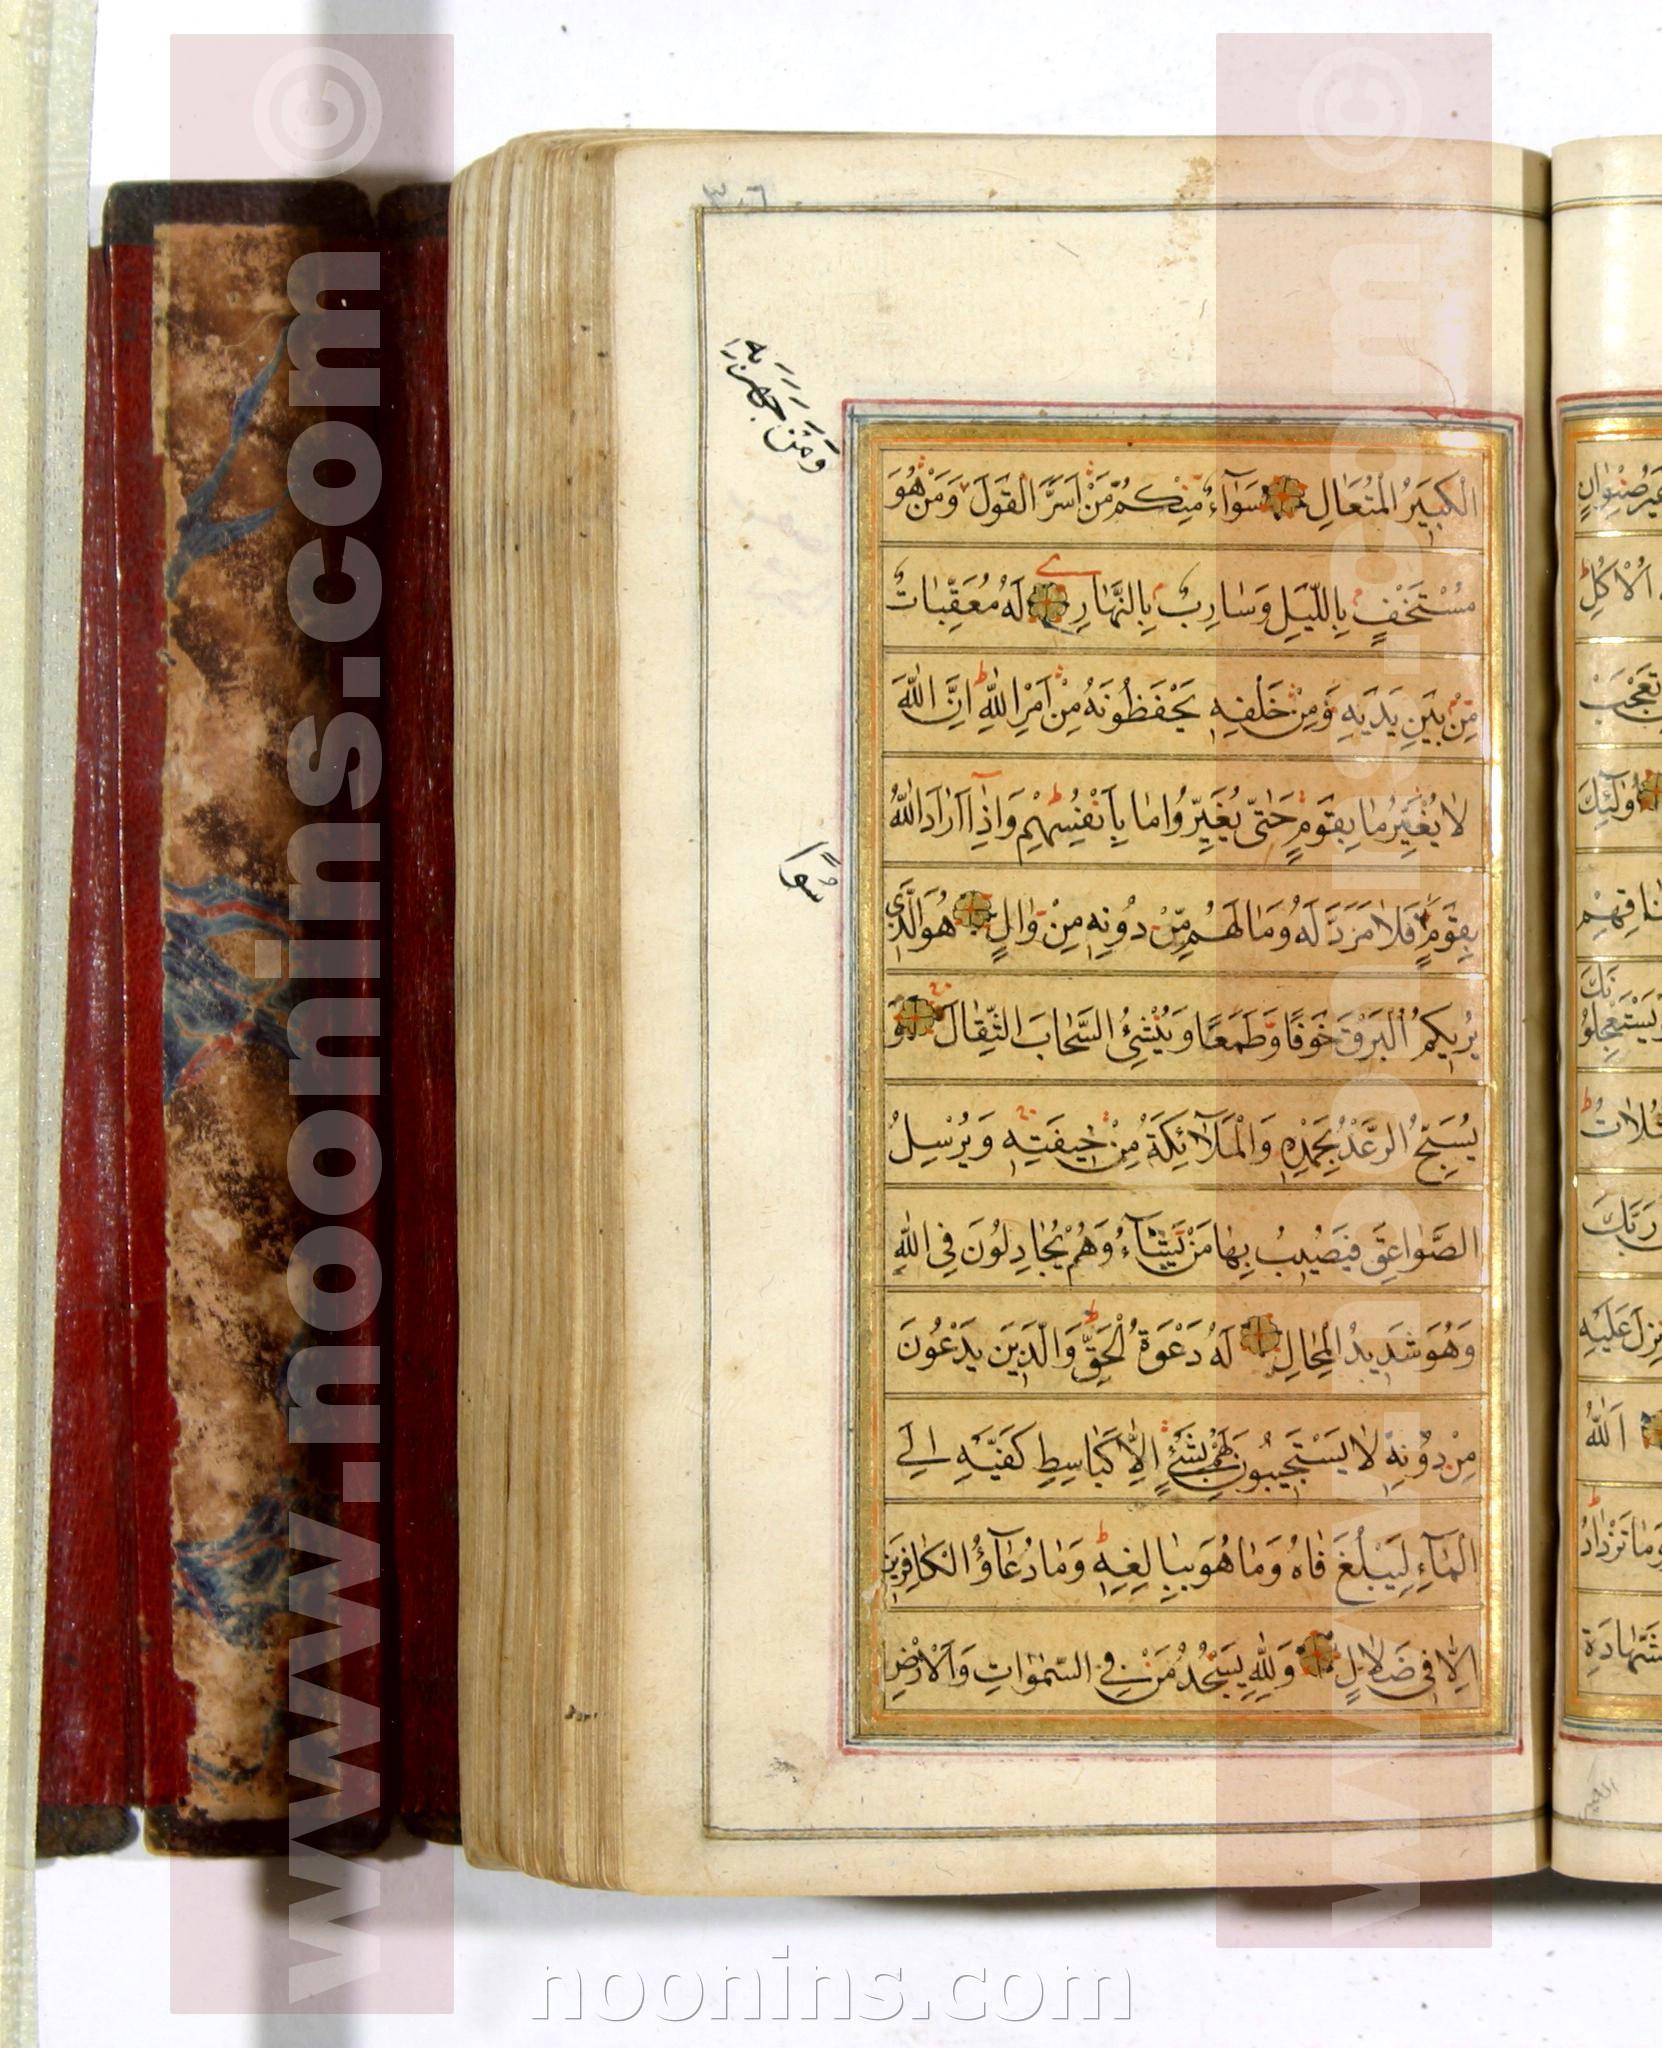 ٣٠٦
وَمَنْ جَهَرَ بِهِ
الْكَبِيرُ الْمُتَعَالِ سَوَآءٌ مِنْكُمْ مَنْ اَسَرَّ الْقَوْلَ وَمَنْ هُوَ
مُسْتَخْفٍ بِاللَّيْلِ وَسَارِبٌ بِالنَّهَارِ لَهُ مُعَقِّبَاتٌ
مِنْ بَيْنِ يَدَيْهِ وَمِنْ خَلْفِهِ يَحْفَظُونَهُ مِنْ اَمْرِ اللّٰهِ اِنَّ اللّٰهَ
لَا يُغَيِّرُ مَا بِقَوْمٍ حَتّٰى يُغَيِّرُوا مَا بِاَنْفُسِهِمْ وَاِذَآ اَرَادَ اللّٰهُ
سُوءًا
بِقَوْمٍ فَلَا مَرَدَّ لَهُ وَمَا لَهُمْ مِنْ دُونِهِ مِنْ وَالٍ هُوَ الَّذِي
يُرِيكُمُ الْبَرْقَ خَوْفًا وَطَمَعًا وَيُنْشِئُ السَّحَابَ الثِّقَالَ وَ
يُسَبِّحُ الرَّعْدُ بِحَمْدِهِ وَالْمَلَآئِكَةُ مِنْ خِيفَتِهِ وَيُرْسِلُ
الصَّوَاعِقَ فَيُصِيبُ بِهَا مَنْ يَشَآءُ وَهُمْ يُجَادِلُونَ فِي اللّٰهِ
وَهُوَ شَدِيدُ الْمِحَالِ لَهُ دَعْوَةُ الْحَقِّ وَالَّذِينَ يَدْعُونَ
مِنْ دُونِهِ لَا يَسْتَجِيبُونَ لَهُمْ بِشَيْءٍ اِلَّا كَبَاسِطِ كَفَّيْهِ اِلَى
الْمَآءِ لِيَبْلُغَ فَاهُ وَمَا هُوَ بِبَالِغِهِ وَمَا دُعَآؤُ الْكَافِرِينَ
اِلَّا فِي ضَلَالٍ وَلِلّٰهِ يَسْجُدُ مَنْ فِي السَّمٰوَاتِ وَالْاَرْضِ
صِنْوَانٍ
الْاُكُلِ
تَعْجَبْ
اُولٰٓئِكَ
فِيهَا هُمْ
وَيَسْتَعْجِلُو
نَكَ
رَبَّكَ
عَلَيْهِ
اَللّٰهُ
وَمَا تَزْدَادُ
www.noonins.com ©
www.noonins.com ©
noonins.com